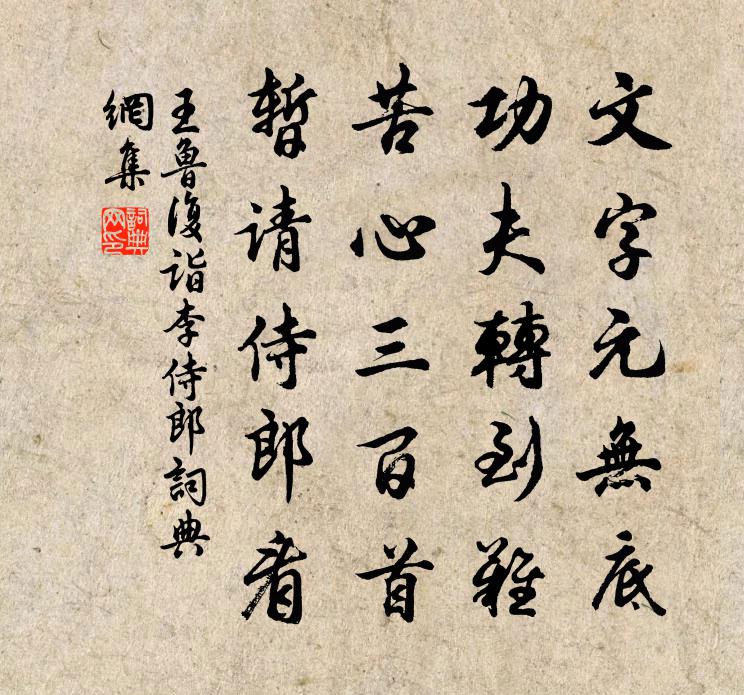 文字元無底
功夫轉到難
苦心三百首
暫請侍郎看
王魯復詣李侍郎詞典
網集
詞典
网印